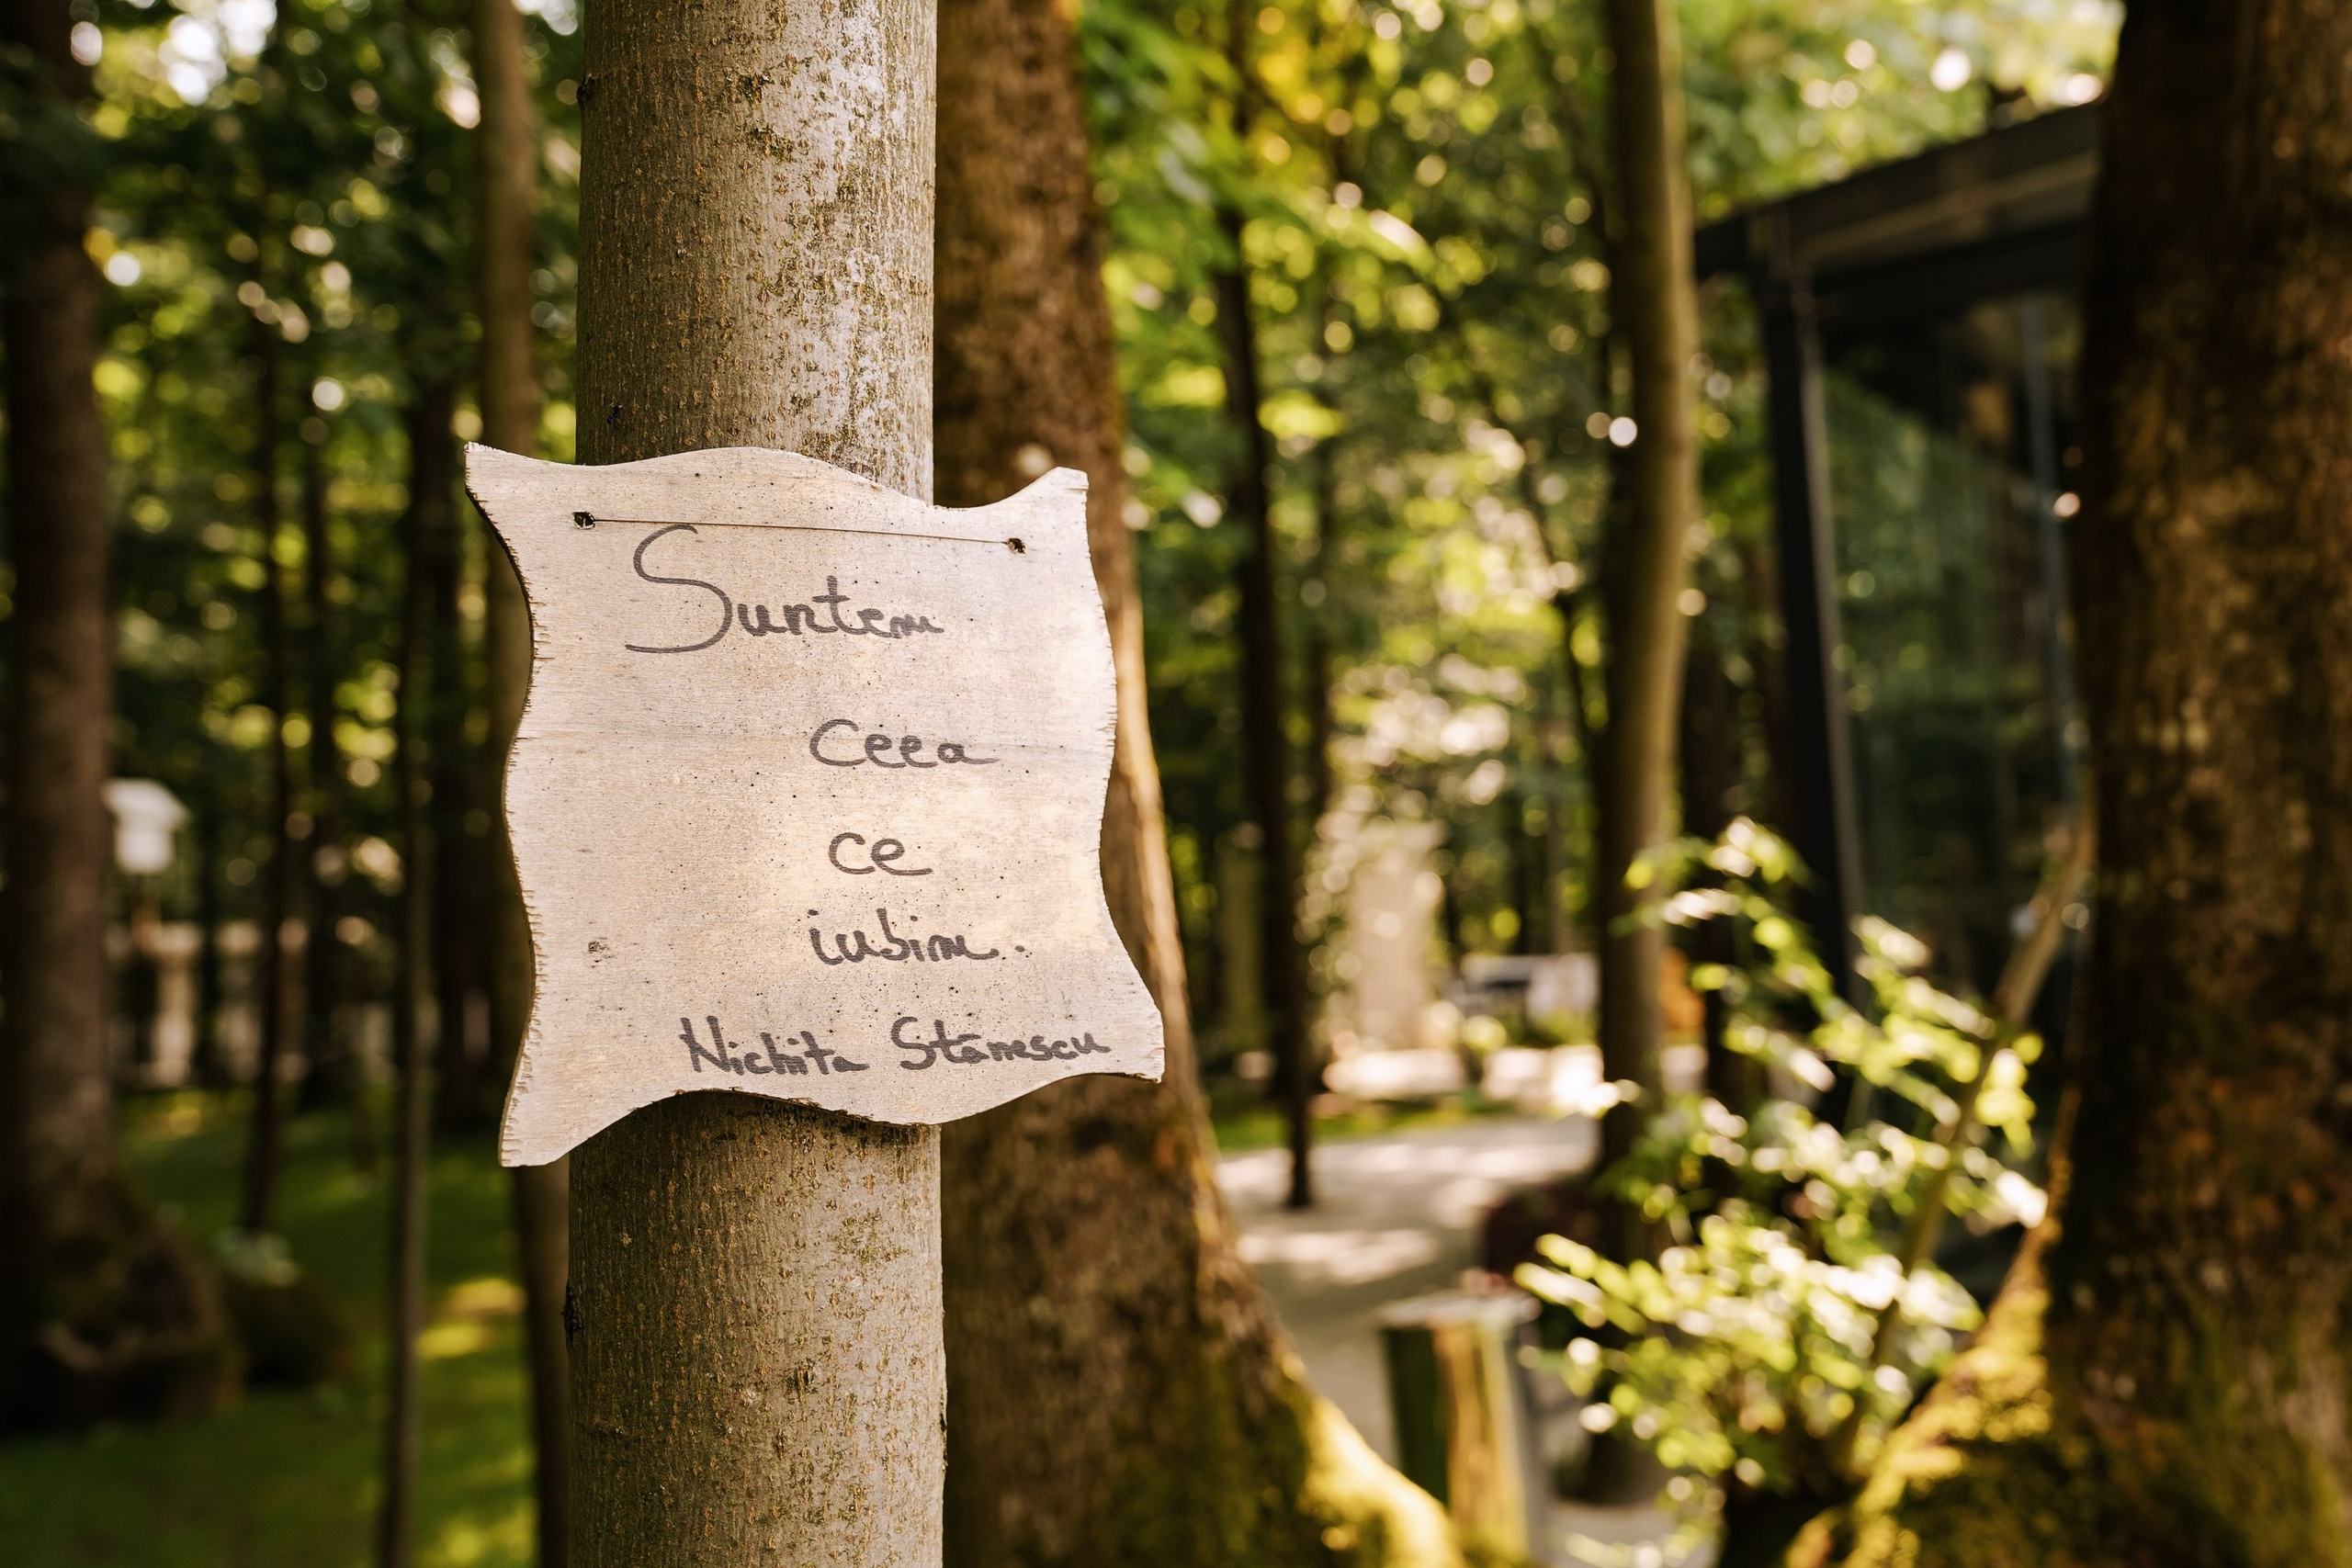 Suntem
Ceea
ce
iubim.
Nichita Stănescu